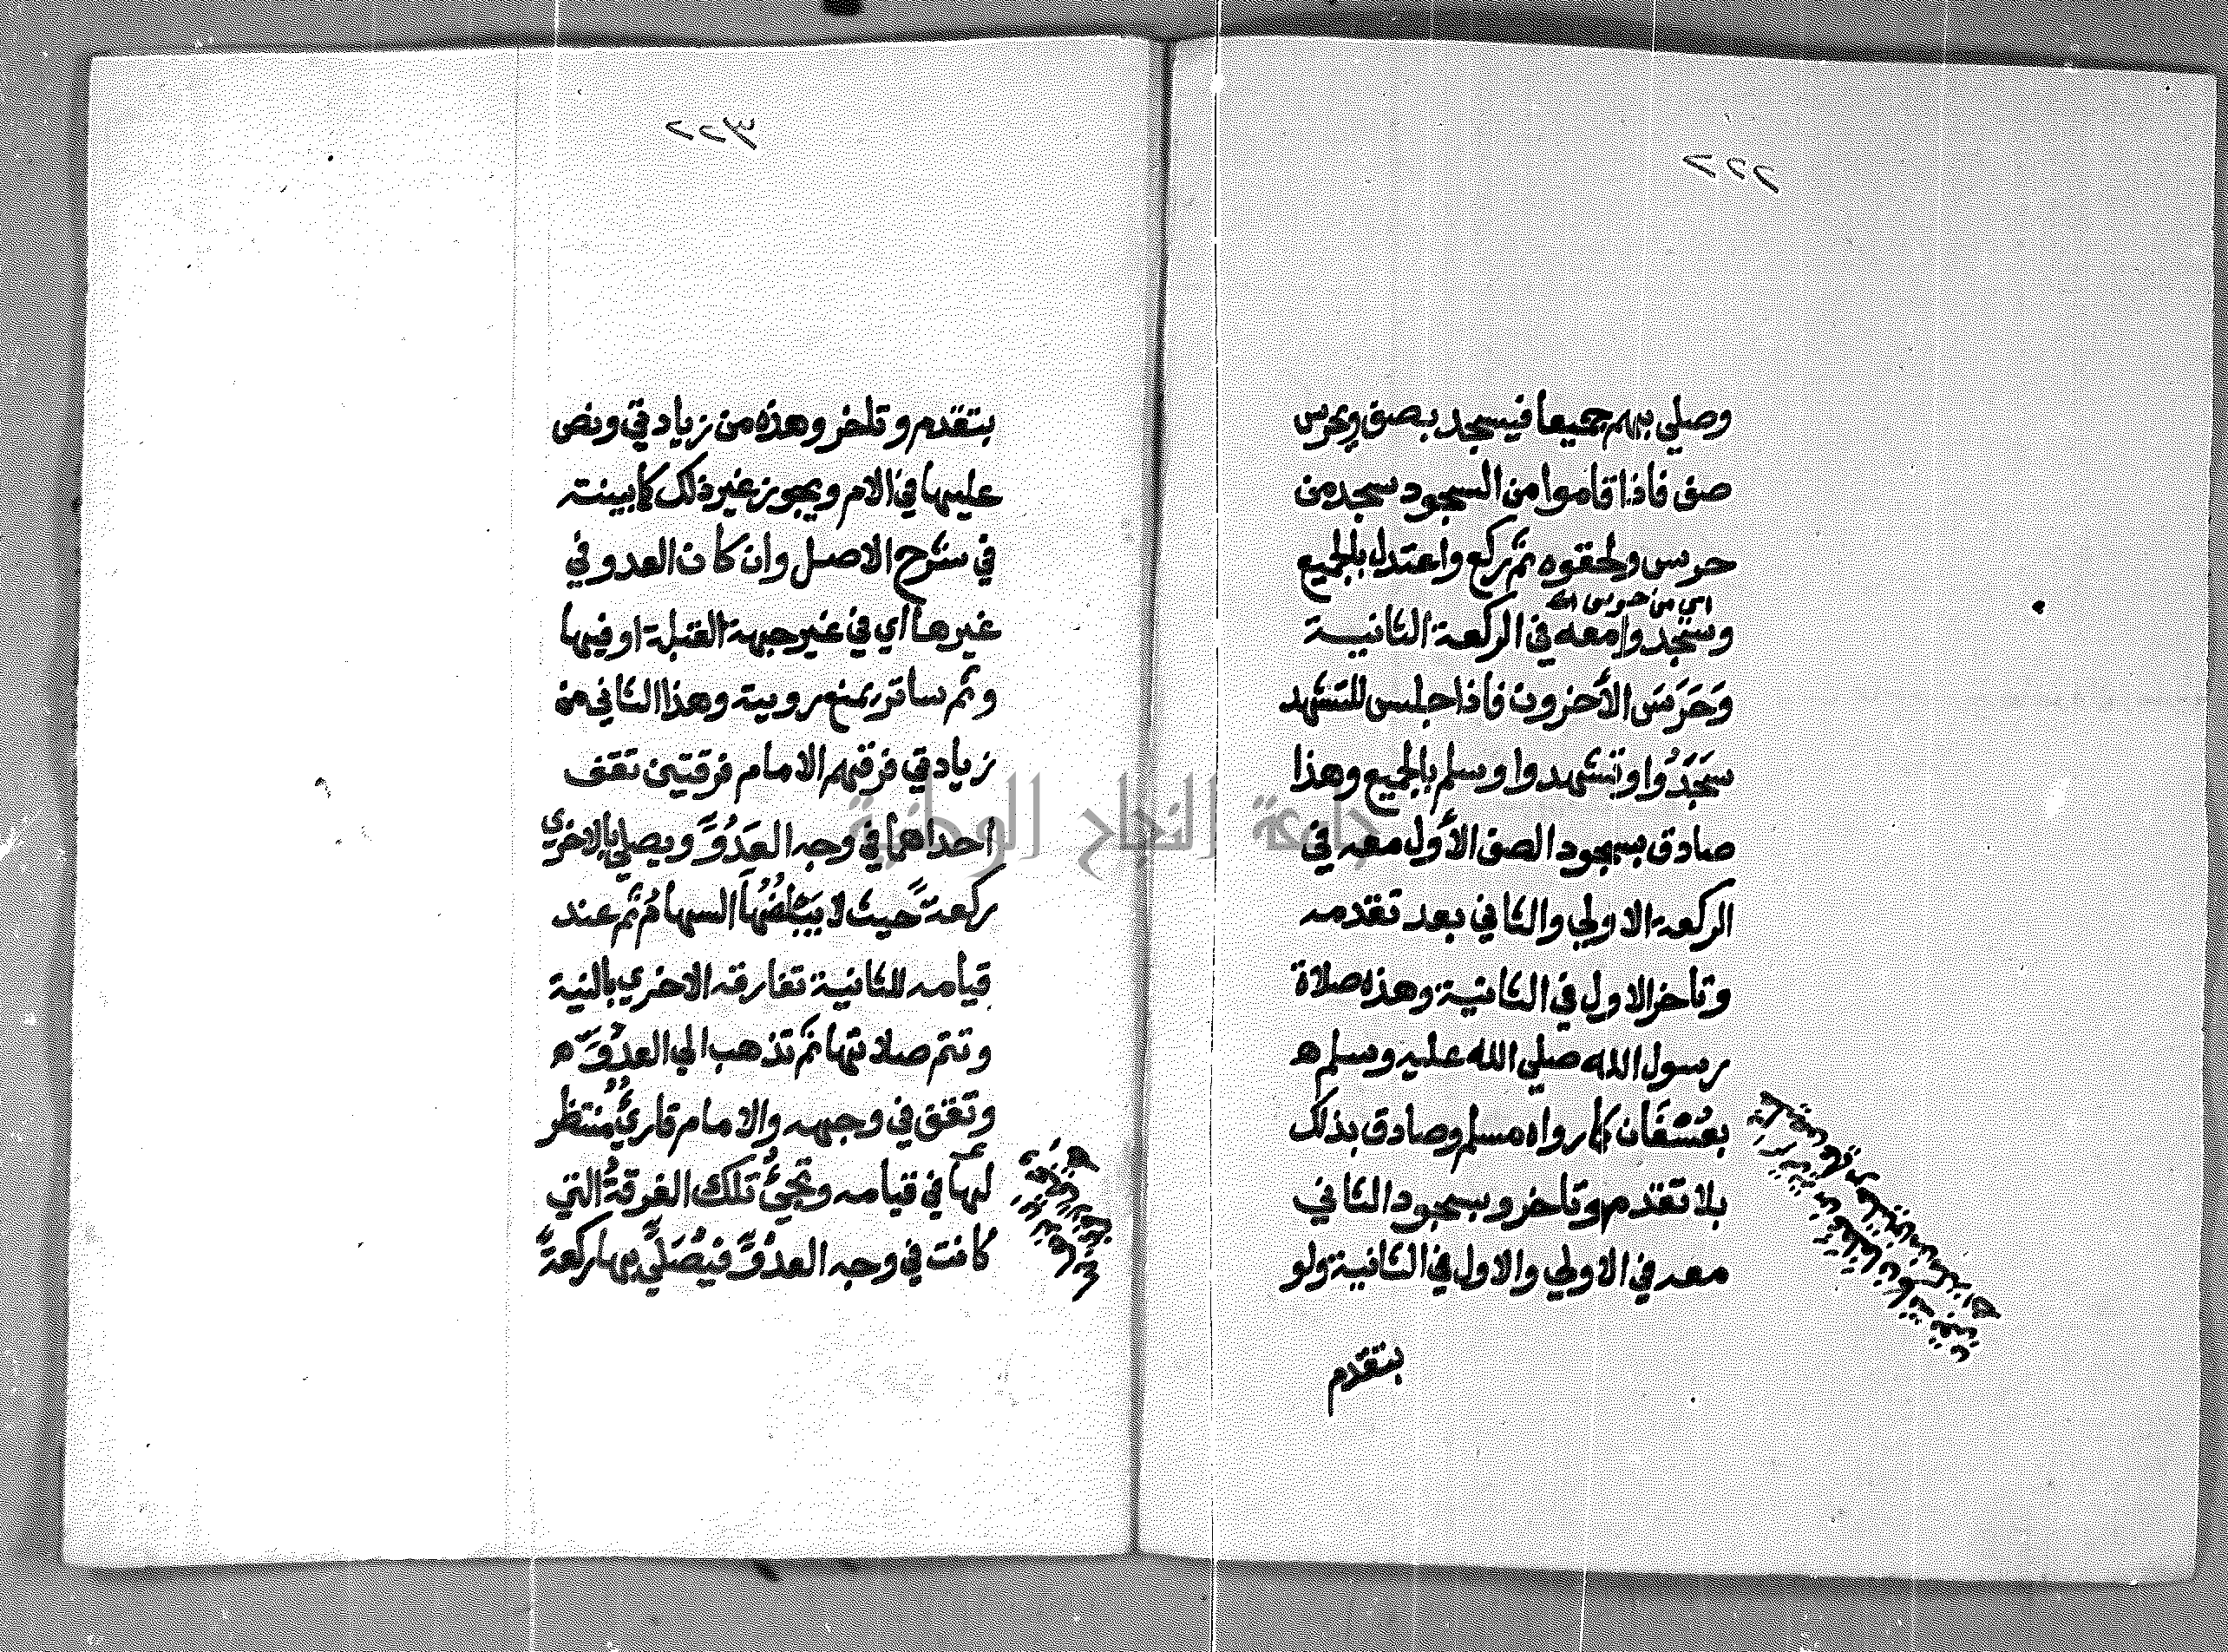 ٢٢٢
وصلي بهم جميعا فيسجد بصف ويحرس
صف فاذا قاموا من السجود سجد من
حرس ولحقوه ثم ركع واعتدل بالجميع
اي من حرس
وسجدوا معه في الركعة الثانية
وَحَرَسَ الأخرون فاذا جلس للتشهد
سَجَدُوا وتشهدوا وسلم بالجميع وهذا
صادق بسجود الصف الأول معه في
الركعة الاولي والثاني بعد تقدمه
وتاخر الاول في الثانية وهذه صلاة
رسول الله صلي الله عليه وسلم
بعُسْفَان كما رواه مسلم وصادق بذلك
بلا تقدم وتاخر وبسجود الثاني
معه في الاولي والاول في الثانية ولو
بتقدم
٢٢٣
بتقدم وتاخر وهذه من زيادتي ونص
عليها في الام ويجوز غير ذلك كما بينته
في شرح الاصل وان كان العدو في
غيرها اي في غير جهة القبلة او فيها
وثم ساتر يمنع روية وهذا الثاني من
زيادتي فرقهم الامام فرقتين تقف
احداهما في وجه العَدُوِّ ويصلي بالاخري
ركعةً حيث لا يَبْلُغُهَا السهامُ ثم عند
قيامه للثانية تفارقه الاخري بالنية
وتتم صلاتها ثم تذهب الي العدُوِّ
وتقف في وجهه والامام قارئٌ مُنتظر
لها في قيامه وتجئُ تلك الفرقةُ التي
كانت في وجه العدُوِّ فيُصَلّي بها ركعةً
جامعة النجاح الوطنية